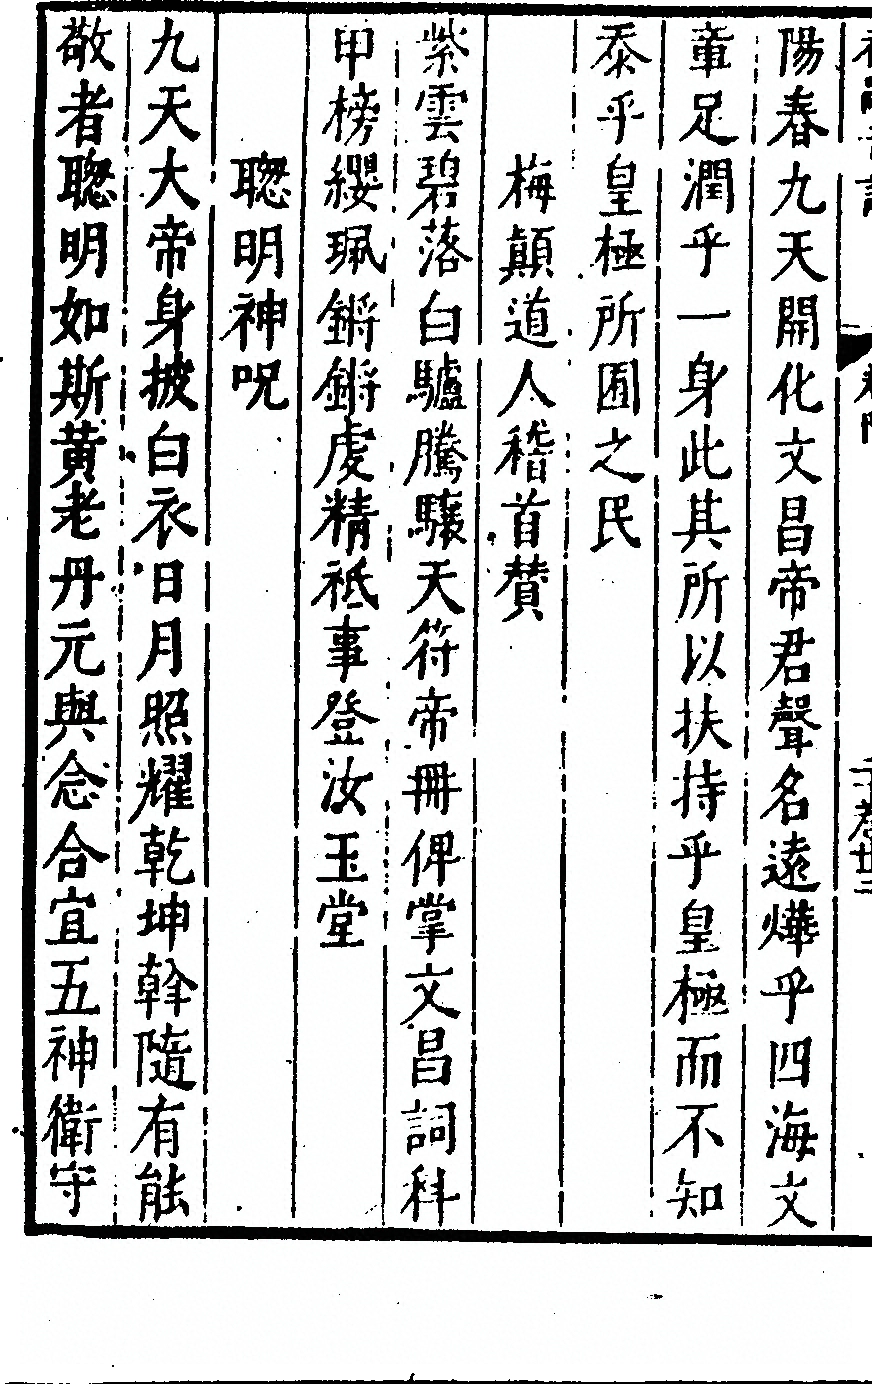 陽春九天開化文昌帝君聲名遠燁乎四海文
章足潤乎一身此其所以扶持乎皇極而不知
泰乎皇極所囿之民
梅顛道人稽首贊
紫雲碧落白驢騰驤天符帝冊俾掌文昌詞科
甲榜纓珮鏘鏘虔精祗事登汝玉堂
聰明神呪
九天大帝身披白衣日月照耀乾坤斡隨有能
敬者聰明如斯黃老丹元與念合宜五神衛守